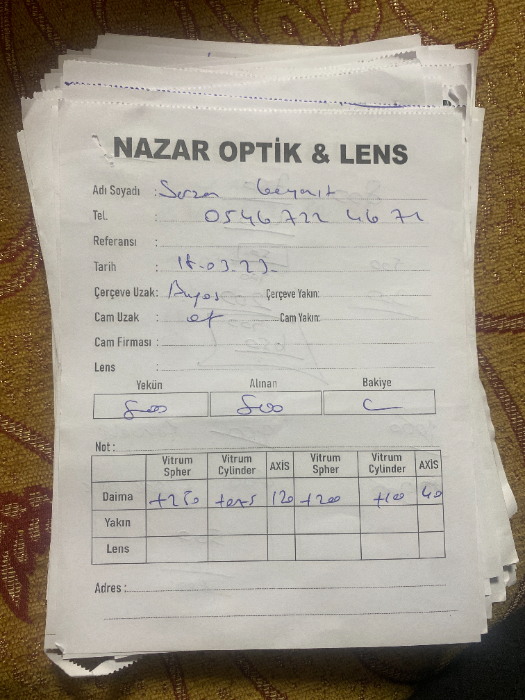 NAZAR OPTİK & LENS
Adı Soyadı :
Tel. : 0546 722 46 72
Referansı :
Tarih : 18.03.23
Çerçeve Uzak: Çerçeve Yakın:
Cam Uzak : Cam Yakın:
Cam Firması :
Lens :
Yekün Alınan Bakiye
800 800
Not :
Vitrum Spher Vitrum Cylinder AXİS Vitrum Spher Vitrum Cylinder AXİS
Daima +250 120 +200 +100 40
Yakın
Lens
Adres :